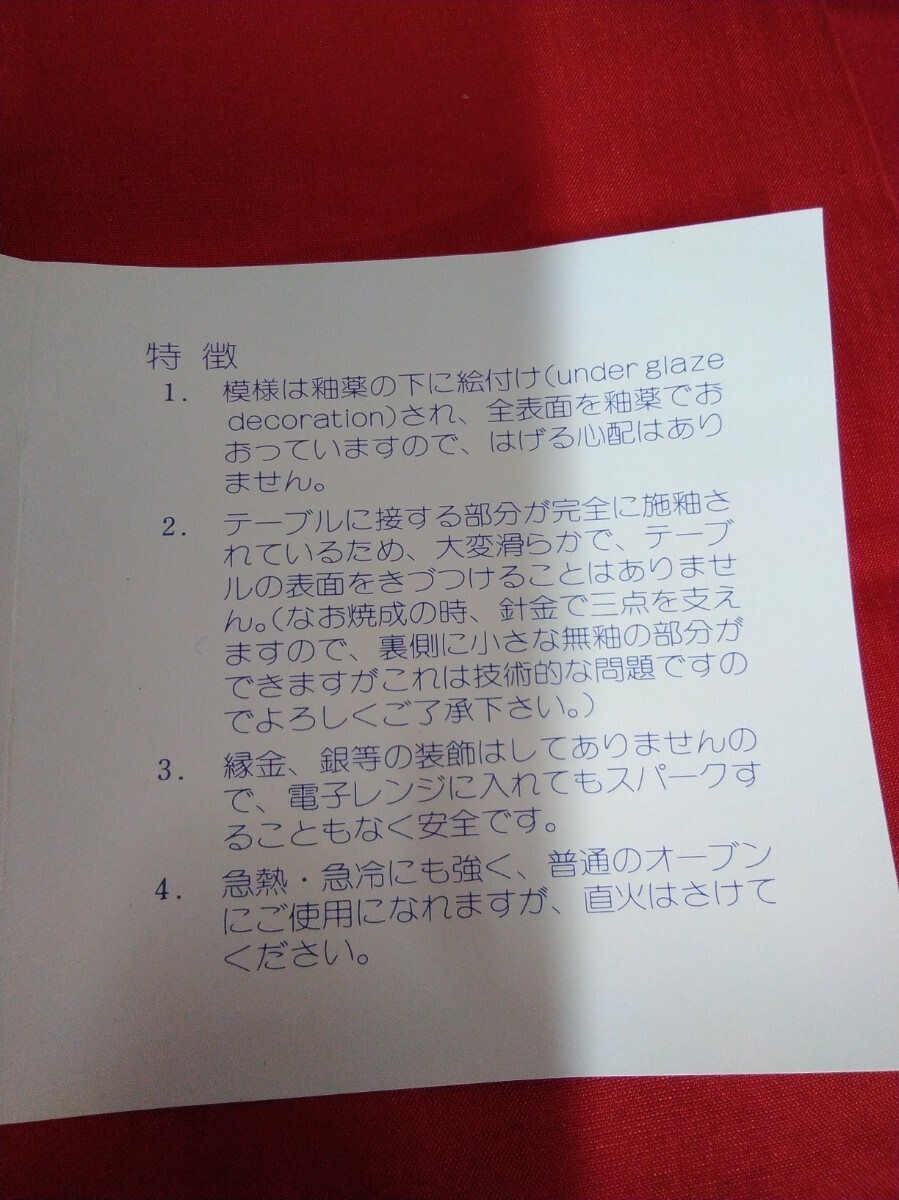 特 徴
1. 模様は釉薬の下に絵付け(under glaze
decoration)され、全表面を釉薬でお
おっていますので、はげる心配はあり
ません。
2. テーブルに接する部分が完全に施釉さ
れているため、大変滑らかで、テーブ
ルの表面をきづつけることはありませ
ん。(なお焼成の時、針金で三点を支え
ますので、裏側に小さな無釉の部分が
できますがこれは技術的な問題ですの
でよろしくご了承下さい。)
3. 縁金、銀等の装飾はしてありませんの
で、電子レンジに入れてもスパークす
ることもなく安全です。
4. 急熱・急冷にも強く、普通のオーブン
にご使用になれますが、直火はさけて
ください。